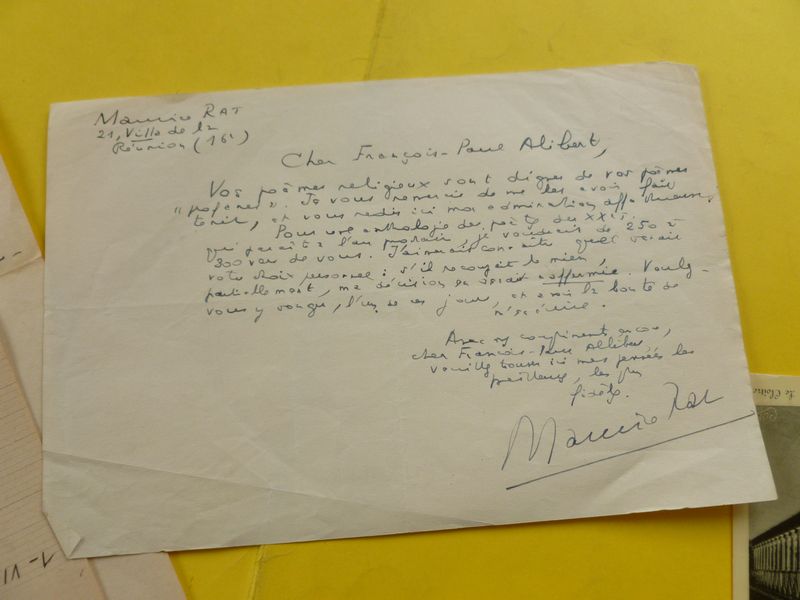 Maurice RAT
21, Villa de la
Réunion (16e)
Cher François-Paul Alibert,
Vos poèmes religieux sont dignes de vos poèmes
"profanes". Je vous remercie de me les avoir fait
tenir, et vous redis ici mon admiration affectueuse.
Pour une anthologie des poètes du XXe s.
qui paraîtra l'an prochain, je voudrais de 250 à
300 vers de vous. J'aimerais connaître quel serait
votre choix personnel : s'il recoupait le mien,
partiellement, ma décision en serait affermie. Veuillez
vous y songer, l'un de ces jours, et avoir la bonté de
m'écrire.
Avec mes compliments encore,
cher François-Paul Alibert
veuillez trouver ici mes pensées les
meilleures, les plus
fidèles.
Maurice Rat
Le Cloître
1-VI